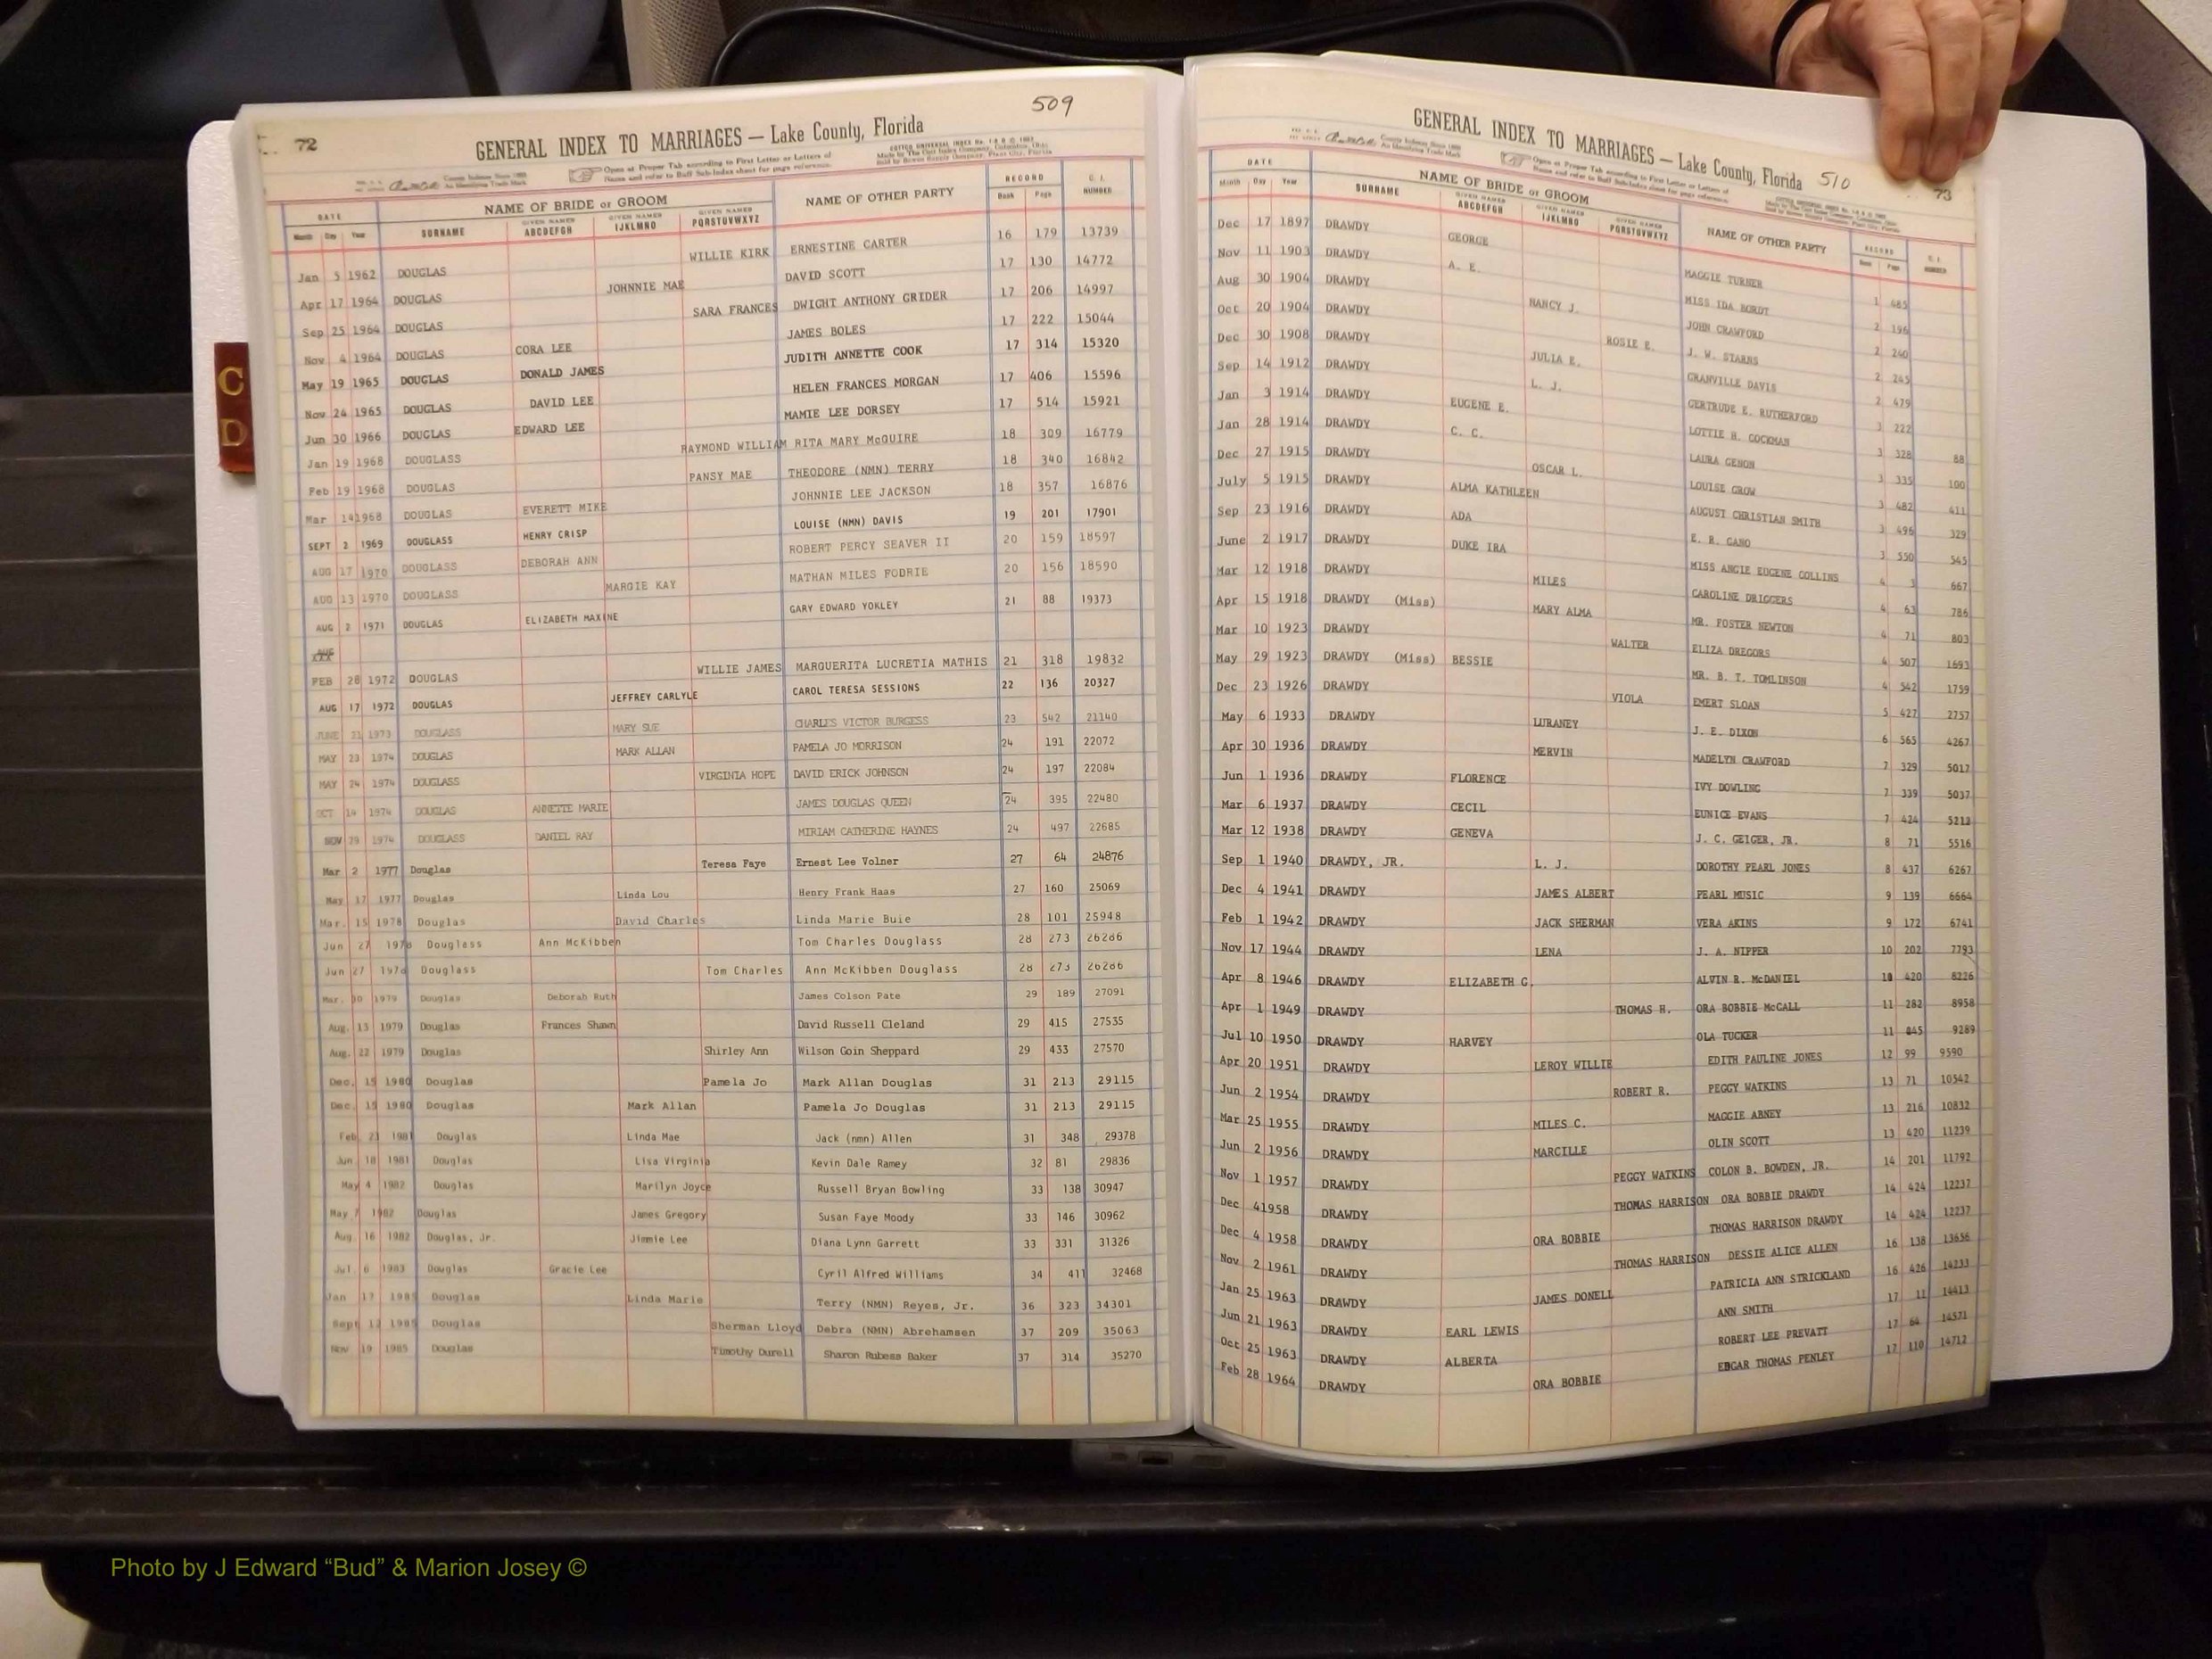 72
509
GENERAL INDEX TO MARRIAGES — Lake County, Florida
Open at Proper Tab according to First Letter or Letters of
Name and refer to Buff Sub-Index sheet for page reference.
DATE NAME OF BRIDE or GROOM NAME OF OTHER PARTY RECORD C. I. NUMBER
Month Day Year SURNAME GIVEN NAMES ABCDEFGH GIVEN NAMES IJKLMNO GIVEN NAMES PQRSTUVWXYZ Book Page
Jan 5 1962 DOUGLAS WILLIE KIRK ERNESTINE CARTER 16 179 13739
Apr 17 1964 DOUGLAS JOHNNIE MAE DAVID SCOTT 17 130 14772
Sep 25 1964 DOUGLAS SARA FRANCES DWIGHT ANTHONY GRIDER 17 206 14997
Nov 4 1964 DOUGLAS CORA LEE JAMES BOLES 17 222 15044
May 19 1965 DOUGLAS DONALD JAMES JUDITH ANNETTE COOK 17 314 15320
Nov 24 1965 DOUGLAS DAVID LEE HELEN FRANCES MORGAN 17 406 15596
Jun 30 1966 DOUGLAS EDWARD LEE MAMIE LEE DORSEY 17 514 15921
Jan 19 1968 DOUGLASS RAYMOND WILLIAM RITA MARY McGUIRE 18 309 16779
Feb 19 1968 DOUGLAS PANSY MAE THEODORE (NMN) TERRY 18 340 16842
Mar 14 1968 DOUGLAS EVERETT MIKE JOHNNIE LEE JACKSON 18 357 16876
SEPT 2 1969 DOUGLASS HENRY CRISP LOUISE (NMN) DAVIS 19 201 17901
AUG 17 1970 DOUGLASS DEBORAH ANN ROBERT PERCY SEAVER II 20 159 18597
AUG 13 1970 DOUGLASS MARGIE KAY NATHAN MILES FODRIE 20 156 18590
AUG 2 1971 DOUGLAS ELIZABETH MAXINE GARY EDWARD YOKLEY 21 88 19373
FEB 28 1972 DOUGLAS WILLIE JAMES MARGUERITA LUCRETIA MATHIS 21 318 19832
AUG 17 1972 DOUGLAS JEFFREY CARLYLE CAROL TERESA SESSIONS 22 136 20327
JUNE 21 1973 DOUGLASS MARY SUE CHARLES VICTOR BURGESS 23 542 21140
MAY 23 1974 DOUGLAS MARK ALLAN PAMELA JO MORRISON 24 191 22072
MAY 24 1974 DOUGLASS VIRGINIA HOPE DAVID ERICK JOHNSON 24 197 22084
OCT 14 1974 DOUGLAS ANNETTE MARIE JAMES DOUGLAS QUEEN 24 395 22480
NOV 29 1974 DOUGLASS DANIEL RAY MIRIAM CATHERINE HAYNES 24 497 22685
Mar 2 1977 Douglas Teresa Faye Ernest Lee Volner 27 64 24876
May 17 1977 Douglas Linda Lou Henry Frank Haas 27 160 25069
Mar. 15 1978 Douglas David Charles Linda Marie Buie 28 101 25948
Jun 27 1978 Douglass Ann McKibben Tom Charles Douglass 28 273 26286
Jun 27 1978 Douglass Tom Charles Ann McKibben Douglass 28 273 26286
Mar. 30 1979 Douglas Deborah Ruth James Colson Pate 29 189 27091
Aug. 13 1979 Douglas Frances Shawn David Russell Cleland 29 415 27535
Aug. 22 1979 Douglas Shirley Ann Wilson Goin Sheppard 29 433 27570
Dec. 15 1980 Douglas Pamela Jo Mark Allan Douglas 31 213 29115
Dec. 15 1980 Douglas Mark Allan Pamela Jo Douglas 31 213 29115
Feb 23 1981 Douglas Linda Mae Jack (nmn) Allen 31 348 29378
Jun 18 1981 Douglas Lisa Virginia Kevin Dale Ramey 32 81 29836
May 4 1982 Douglas Marilyn Joyce Russell Bryan Bowling 33 138 30947
May 7 1982 Douglas James Gregory Susan Faye Moody 33 146 30962
Aug. 16 1982 Douglas, Jr. Jimmie Lee Diana Lynn Garrett 33 331 31326
Jul 6 1983 Douglas Gracie Lee Cyril Alfred Williams 34 411 32468
Jan 17 1985 Douglas Linda Marie Terry (NMN) Reyes, Jr. 36 323 34301
Sept 12 1985 Douglas Sherman Lloyd Debra (NMN) Abrehamsen 37 209 35063
Nov 19 1985 Douglas Timothy Durell Sharon Rubess Baker 37 314 35270
C
D
GENERAL INDEX TO MARRIAGES — Lake County, Florida 510
73
Open at Proper Tab according to First Letter or Letters of
Name and refer to Buff Sub-Index sheet for page reference.
DATE NAME OF BRIDE or GROOM NAME OF OTHER PARTY RECORD C. I. NUMBER
Month Day Year SURNAME GIVEN NAMES ABCDEFGH GIVEN NAMES IJKLMNO GIVEN NAMES PQRSTUVWXYZ Book Page
Dec 17 1897 DRAWDY GEORGE MAGGIE TURNER 1 485
Nov 11 1903 DRAWDY A. E. MISS IDA BORDT 2 196
Aug 30 1904 DRAWDY NANCY J. JOHN CRAWFORD 2 240
Oct 20 1904 DRAWDY ROSIE E. J. W. STARRS 2 245
Dec 30 1908 DRAWDY JULIA E. GRANVILLE DAVIS 2 479
Sep 14 1912 DRAWDY L. J. GERTRUDE E. RUTHERFORD 3 222
Jan 3 1914 DRAWDY EUGENE E. LOTTIE H. COCKMAN 3 328 88
Jan 28 1914 DRAWDY C. C. LAURA GENON 3 335 100
Dec 27 1915 DRAWDY OSCAR L. LOUISE GROW 3 482 411
July 5 1915 DRAWDY ALMA KATHLEEN AUGUST CHRISTIAN SMITH 3 496 329
Sep 23 1916 DRAWDY ADA E. R. GANO 3 550 545
June 2 1917 DRAWDY DUKE IRA MISS ANGIE EUGENE COLLINS 4 3 667
Mar 12 1918 DRAWDY MILES CAROLINE DRIGGERS 4 63 786
Apr 15 1918 DRAWDY (Miss) MARY ALMA MR. FOSTER NEWTON 4 71 803
Mar 10 1923 DRAWDY WALTER ELIZA DREGORS 4 507 1693
May 29 1923 DRAWDY (Miss) BESSIE MR. B. T. TOMLINSON 4 542 1759
Dec 23 1926 DRAWDY VIOLA EMERT SLOAN 5 427 2757
May 6 1933 DRAWDY LURANEY J. E. DIXON 6 565 4267
Apr 30 1936 DRAWDY MERVIN MADELYN CRAWFORD 7 329 5017
Jun 1 1936 DRAWDY FLORENCE IVY DOWLING 7 339 5037
Mar 6 1937 DRAWDY CECIL EUNICE EVANS 7 424 5212
Mar 12 1938 DRAWDY GENEVA J. C. GEIGER, JR. 8 71 5516
Sep 1 1940 DRAWDY, JR. L. J. DOROTHY PEARL JONES 8 437 6267
Dec 4 1941 DRAWDY JAMES ALBERT PEARL MUSIC 9 139 6664
Feb 1 1942 DRAWDY JACK SHERMAN VERA AKINS 9 172 6741
Nov 17 1944 DRAWDY LENA J. A. NIPPER 10 202 7793
Apr 8 1946 DRAWDY ELIZABETH G. ALVIN R. McDANIEL 10 420 8226
Apr 1 1949 DRAWDY THOMAS H. ORA BOBBIE McCALL 11 282 8958
Jul 10 1950 DRAWDY HARVEY OLA TUCKER 11 445 9289
Apr 20 1951 DRAWDY LEROY WILLIE EDITH PAULINE JONES 12 99 9590
Jun 2 1954 DRAWDY ROBERT R. PEGGY WATKINS 13 71 10542
Mar 25 1955 DRAWDY MILES C. MAGGIE ABNEY 13 216 10832
Jun 2 1956 DRAWDY MARCILLE OLIN SCOTT 13 420 11239
Nov 1 1957 DRAWDY PEGGY WATKINS COLON B. BOWDEN, JR. 14 201 11792
Dec 4 1958 DRAWDY THOMAS HARRISON ORA BOBBIE DRAWDY 14 424 12237
Dec 4 1958 DRAWDY ORA BOBBIE THOMAS HARRISON DRAWDY 14 424 12237
Nov 2 1961 DRAWDY THOMAS HARRISON DESSIE ALICE ALLEN 16 138 13656
Jan 25 1963 DRAWDY JAMES DONELL PATRICIA ANN STRICKLAND 16 426 14233
Jun 21 1963 DRAWDY EARL LEWIS ANN SMITH 17 11 14413
Oct 25 1963 DRAWDY ALBERTA ROBERT LEE PREVATT 17 64 14571
Feb 28 1964 DRAWDY ORA BOBBIE EDGAR THOMAS PENLEY 17 110 14712
Photo by J Edward “Bud” & Marion Josey ©